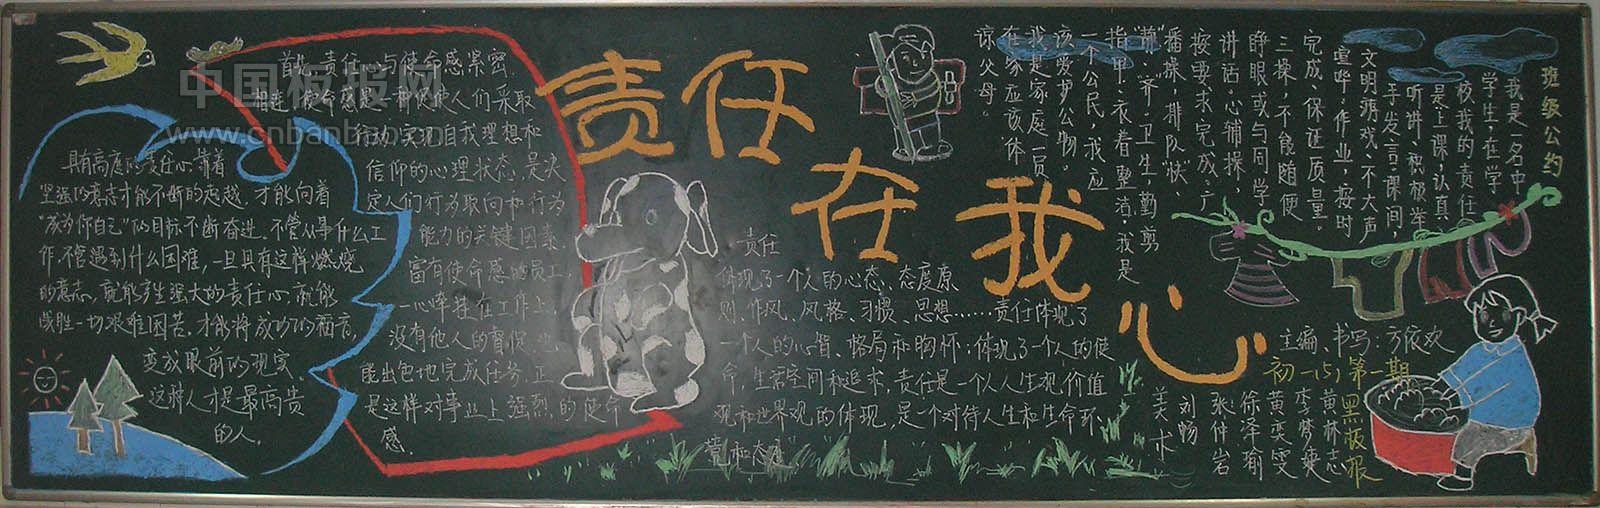 中国板报网
www.cnbanbao.cn
责任在我心
首先,责任心与使命感紧密
相连,使命感是一种促使人们采取
行动,实现自我理想和
信仰的心理状态,是决
定人们行为取向和行为
能力的关键因素。
富有使命感的员工,
一心牵挂在工作上,
没有他人的督促,也
能出色地完成任务。正
是这样对事业上强烈的使命
感。
具有高度的责任心,靠着
坚强的意志才能不断的超越,才能向着
“成为你自己”的目标不断奋进。不管从事什么工
作,不管遇到什么困难,一旦具有这样燃烧
的意志,就能产生强大的责任心,就能
战胜一切艰难困苦,才能将成功的福音,
变成眼前的现实,
这种人才是最高贵
的人。
责任
体现了一个人的心态、态度原
则、作风、风格、习惯、思想……责任体现了
一个人的心胸、格局和胸怀;体现了一个人的使
命,生活空间和追求,责任是一个人人生观,价值
观和世界观的体现,是一个对待人生和生命环
境和态度
班级公约
我是一名中
学生,在学
校我的责任
是上课认真
听讲、积极举
手发言。课间,
文明游戏、不大声
喧哗。作业,按时
完成、保证质量。
三操,不能随便
睁眼或与同学
讲话。心铺操,
按要求完成。广
播操,排队“快、
静、齐”。卫生,勤剪
指甲、衣着整洁。我是
一个公民,我应
该爱护公物。
我是家庭一员
在家应该体
谅父母。
主编、书写:方依欢
初一(5)第一期
黑板报
黄林志
李梦爽
黄奕雯
徐泽瑜
张仲岩
刘畅
美术